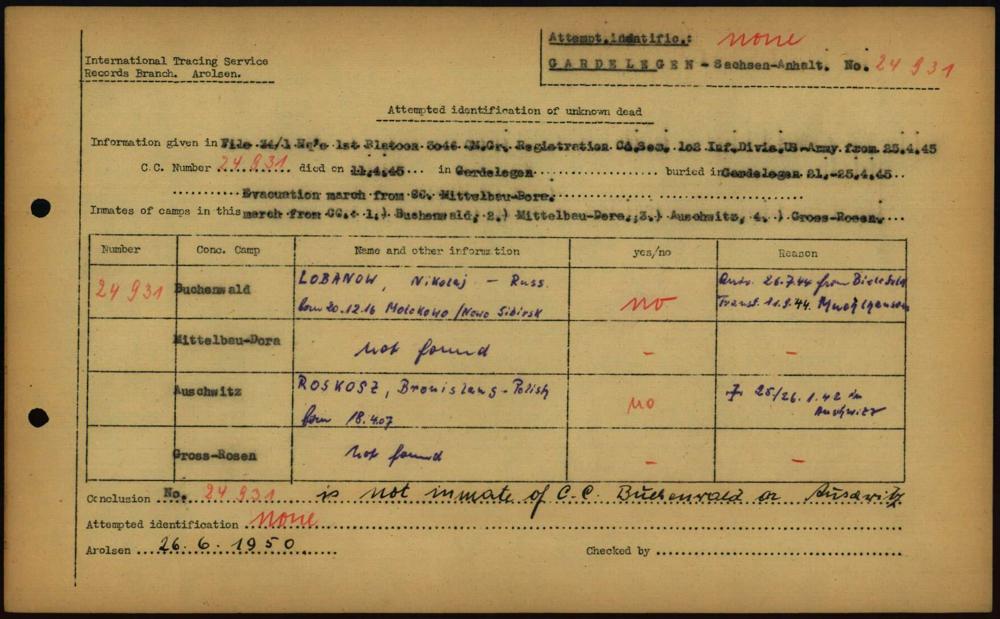 International Tracing Service
Records Branch. Arolsen.
Attempt.identific.: none
GARDELEGEN - Sachsen-Anhalt. No. 24 931
Attempted identification of unknown dead
Information given in File 24/1 Hq's 1st Platoon 3046 QM.Gr. Registration Co,Sec. 102 Inf.Divis.US-Army from 25.4.45
C.C. Number 24 931 died on 11.4.45 in Gardelegen buried in Gardelegen 21.-25.4.45
Evacuation march from CC. Mittelbau-Dora.
Inmates of camps in this march from CC.: 1.) Buchenwald, 2.) Mittelbau-Dora, 3.) Auschwitz, 4.) Gross-Rosen.
Number Conc. Camp Name and other information yes/no Reason
24 931 Buchenwald LOBANOW, Nikolaj - Russ. no 26.7.44 from Bielefeld
born 20.12.16 Molokowo /Nowo Sibirsk Transf. 11.9.44
Mittelbau-Dora not found - -
Auschwitz ROSKOSZ, Bronislaus - Polish no 25/26.1.42 in
born 18.4.07 Auschwitz
Gross-Rosen not found - -
Conclusion No. 24 931 is not inmate of C.C. Buchenwald or Auschwitz
Attempted identification none
Arolsen 26.6.1950 Checked by